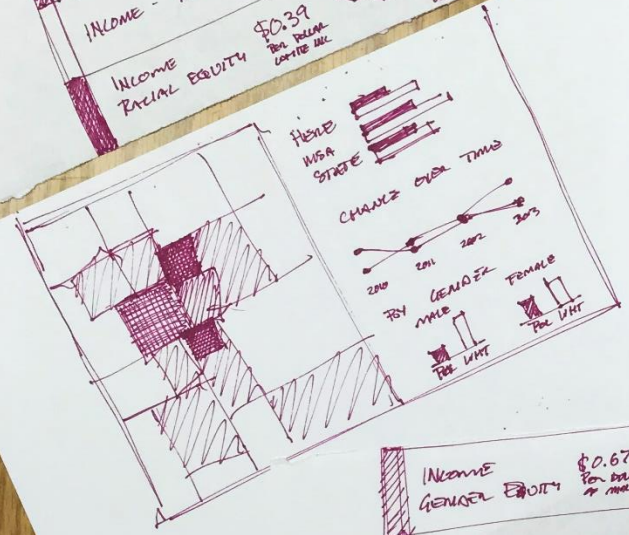 INCOME -
INCOME $0.39
RACIAL EQUITY PER DOLLAR
WHITE INC
HERE
MSA
STATE
CHANGE OVER TIME
2010 2011 2012 2013
BY GENDER
MALE FEMALE
POC WHT POC WHT
INCOME $0.67
GENDER EQUITY PER DOL